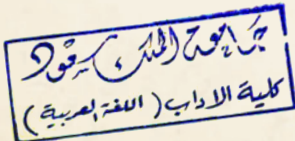 جامعة الملك سعود
كلية الاداب ( اللغة العربية )